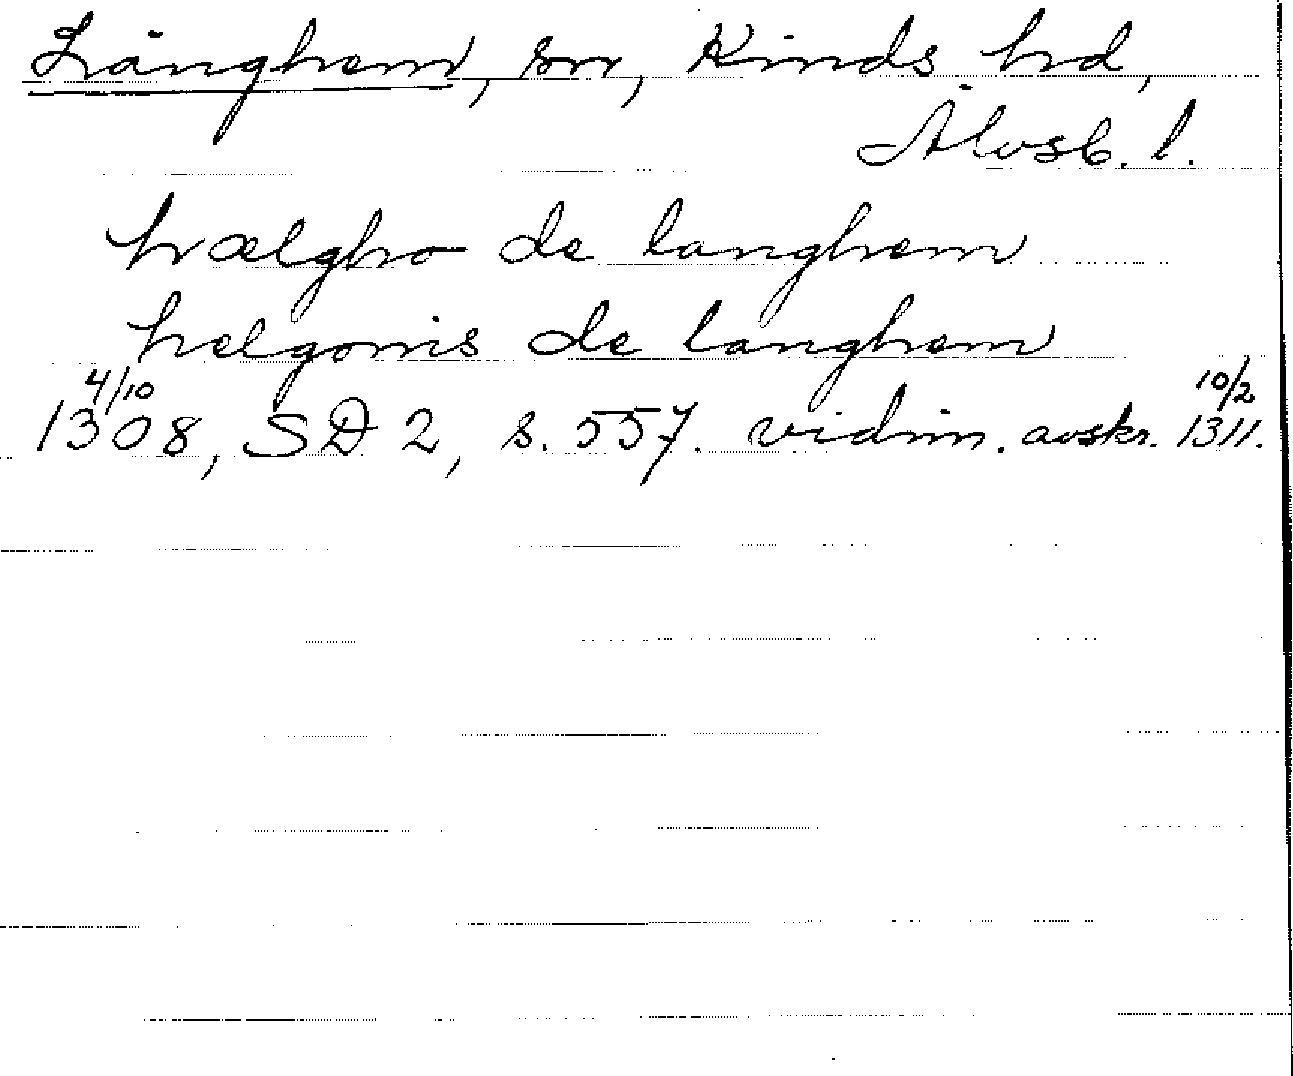 Länghem, sn, Kinds hd,
Älvsb. l.
hælgho de langhem
helgonis de langhem
4/10 10/2
1308, SD 2, s. 557. vidim. avskr. 1311.